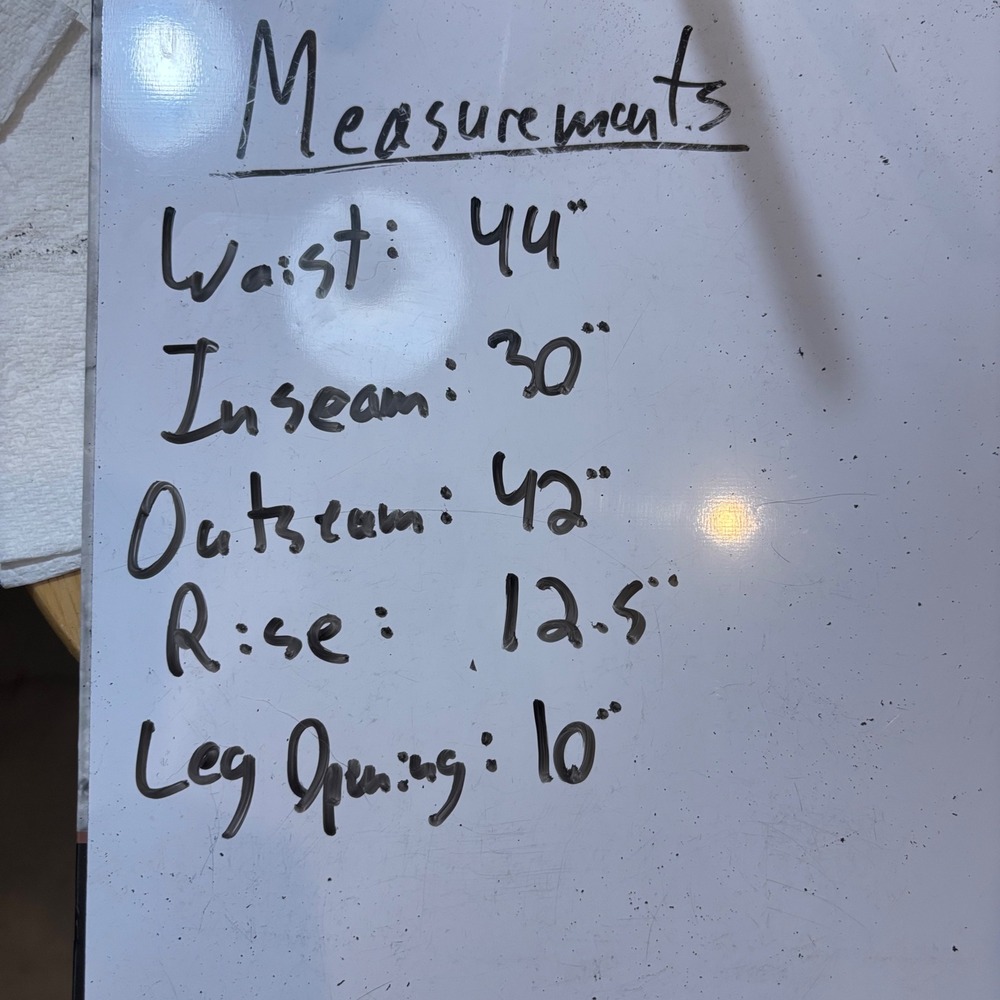 Measurements
Waist: 44"
Inseam: 30"
Outseam: 42"
Rise: 12.5"
Leg Opening: 10"